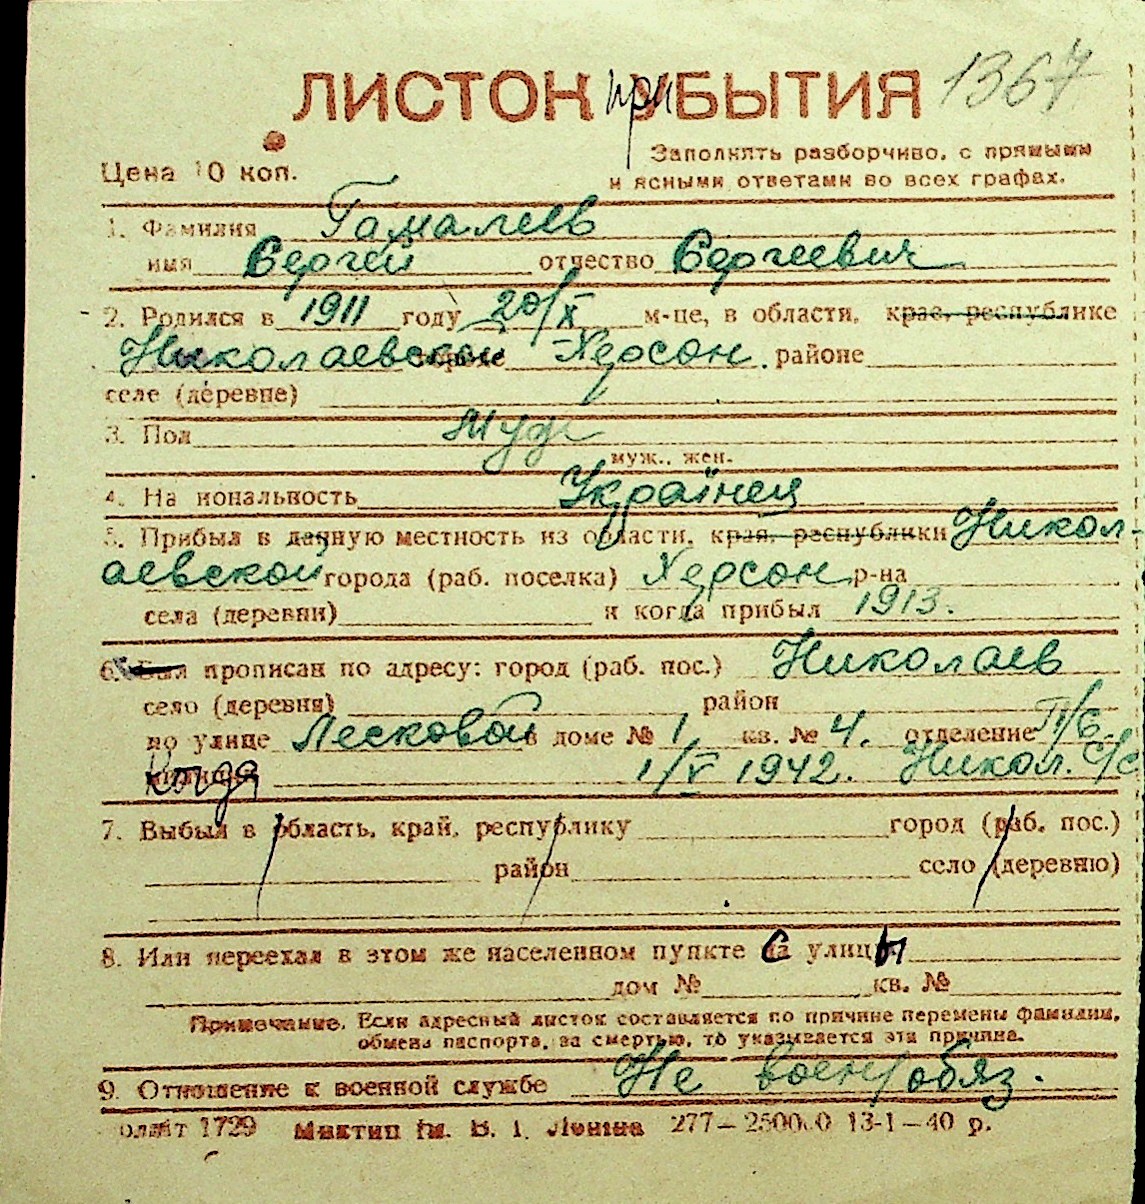 ЛИСТОК прибытия 1367
Заполнять разборчиво, с прямыми
Цена 10 коп.
и ясными ответами во всех графах.
1. Фамилия Гамалеев
имя Сергей отчество Сергеевич
2. Родился в 1911 году 20/X м-це, в области, крае, республике
Николаевской Херсон районе
селе (деревне)
3. Пол Муж
муж., жен.
4. Национальность Українец
5. Прибыл в данную местность из области, края, республики Никол-
аевской города (раб. поселка) Херсон р-на
села (деревни) и когда прибыл 1913.
6. Был прописан по адресу: город (раб. пос.) Николаев
село (деревня) район
по улице Лесковой в доме № 1 кв. № 4. отделение П/б.
Когда 1/V 1942. Никол. с/с
7. Выбыл в область, край, республику город (раб. пос.)
район село (деревню)
8. Или переехал в этом же населенном пункте с улицы
дом № кв. №
Примечание. Если адресный листок составляется по причине перемены фамилии,
обмена паспорта, за смертью, то указывается эта причина.
9. Отношение к военной службе Не воен/обяз.
1729 Миктип им. В. І. Леніна 277—250000 13-1—40 р.